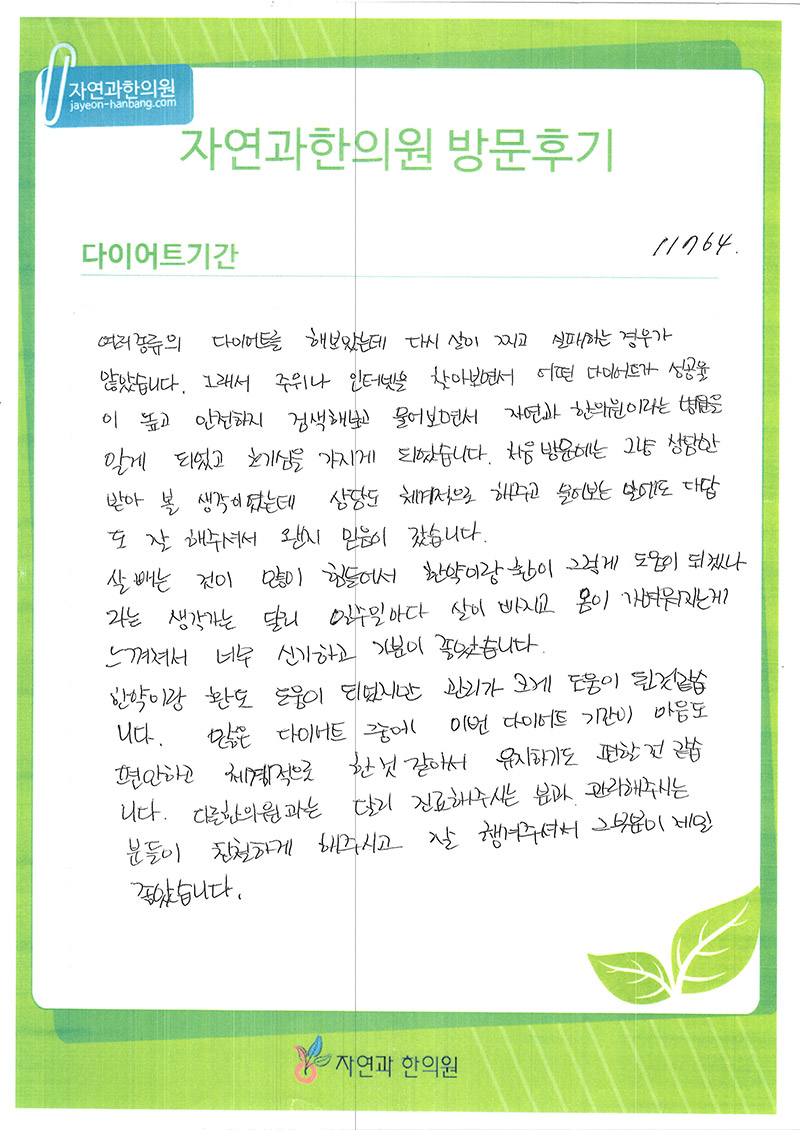 자연과한의원
jayeon-hanbang.com
자연과한의원 방문후기
다이어트기간
11764.
여러종류의 다이어트를 해보았는데 다시 살이 찌고 실패하는 경우가
많았습니다. 그래서 주위나 인터넷을 찾아보면서 어떤 다이어트가 성공율
이 높고 안전하지 검색해보고 물어보면서 자연과 한의원이라는 병원을
알게 되었고 호기심을 가지게 되었습니다. 처음 방문에는 그냥 상담만
받아 볼 생각이였는데 상담도 체계적으로 해주고 물어보는 말에도 대답
도 잘 해주셔서 왠지 믿음이 갔습니다.
살 빼는 것이 많이 힘들어서 한약이랑 환이 그렇게 도움이 되겠나
라는 생각과는 달리 일주일마다 살이 빠지고 몸이 가벼워지는게
느껴져서 너무 신기하고 기분이 좋았습니다.
한약이랑 환도 도움이 되었지만 관리가 크게 도움이 된것같습
니다. 많은 다이어트 중에 이번 다이어트 기간이 마음도
편안하고 체계적으로 한것 같아서 유지하기도 편할 것 같습
니다. 다른한의원과는 달리 진료해주시는 분과 관리해주시는
분들이 친절하게 해주시고 잘 챙겨주셔서 그부분이 제일
좋았습니다.
자연과 한의원